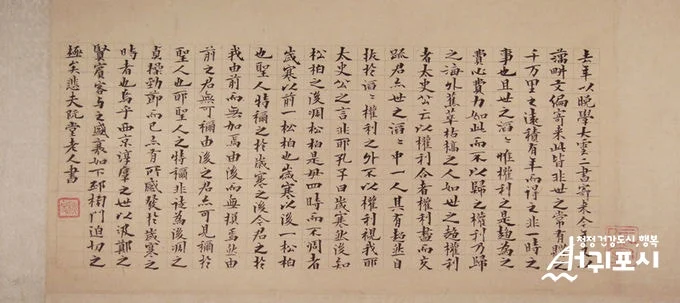 去年以晩學大雲二書寄來今年
藕畊文編寄來此皆非世之常有購之
千万里之遠積有年而得之非一時之
事也且世之滔〻惟權利之是趨爲之
費心費力如此而不以歸之權利乃歸
之海外蕉萃枯槁之人如世之趨權利
者太史公云以權利合者權利盡而交
踈君亦世之滔〻中一人其有超然自
拔於滔〻權利之外不以權利視我耶
太史公之言非耶孔子曰歲寒然後知
松栢之後凋松栢是毋四時而不凋者
歲寒以前一松栢也歲寒以後一松栢
也聖人特稱之於歲寒之後今君之於
我由前而無加焉由後而無損焉然由
前之君無可稱由後之君亦可見稱於
聖人也耶聖人之特稱非徒爲後凋之
貞操勁節而已亦有所感發於歲寒之
時者也烏乎西京淳厚之世以汲鄭之
賢賓客與之盛衰如下邳榜門迫切之
極矣悲夫阮堂老人書
청정건강도시, 행복
서귀포시